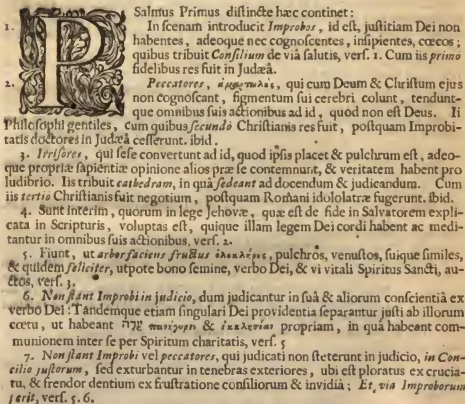 Psalmus Primus distincte hæc continet:
1. In scenam introducit Improbos, id est, justitiam Dei non
habentes, adeoque nec cognoscentes, insipientes, cœcos;
quibus tribuit Consilium de viâ salutis, vers. 1. Cum iis primo
fidelibus res fuit in Judæâ.
2. Peccatores, ἁμαρτωλὺς, qui cum Deum & Christum ejus
non cognoscant, figmentum sui cerebri colunt, tendunt-
que omnibus suis actionibus ad id, quod non est Deus. Ii
Philosophi gentiles, cum quibus secundò Christianis res fuit, postquam Improbi-
tatis doctores in Judæâ cesserunt. ibid.
3. Irrisores, qui sese convertunt ad id, quod ipsis placet & pulchrum est, adeo-
que propriæ sapientiæ opinione alios præ se contemnunt, & veritatem habent pro
ludibrio. Iis tribuit cathedram, in quâ sedeant ad docendum & judicandum. Cum
iis tertiò Christianis fuit negotium, postquam Romani idololatræ fugerunt. ibid.
4. Sunt interim, quorum in lege Jehovæ, quæ est de fide in Salvatorem expli-
cata in Scripturis, voluptas est, quique illam legem Dei cordi habent ac medi-
tantur in omnibus suis actionibus, vers. 2.
5. Fiunt, ut arbor faciens fructus ὁλοκλήρυς, pulchros, venustos, suique similes,
& quidem feliciter, utpote bono semine, verbo Dei, & vi vitali Spiritus Sancti, au-
ctos, vers. 3.
6. Non stant Improbi in judicio, dum judicantur in suâ & aliorum conscientiâ ex
verbo Dei: Tandemque etiam singulari Dei providentia separantur justi ab illorum
cœtu, ut habeant עדה πανήγυριν & ἐκκλησίαν propriam, in quâ habeant com-
munionem inter se per Spiritum charitatis, vers. 5
7. Non stant Improbi vel peccatores, qui judicati non steterunt in judicio, in Con-
cilio justorum, sed exturbantur in tenebras exteriores, ubi est ploratus ex crucia-
tu, & frendor dentium ex frustratione consiliorum & invidiâ; Et, via Improborum
perit, vers. 5. 6.